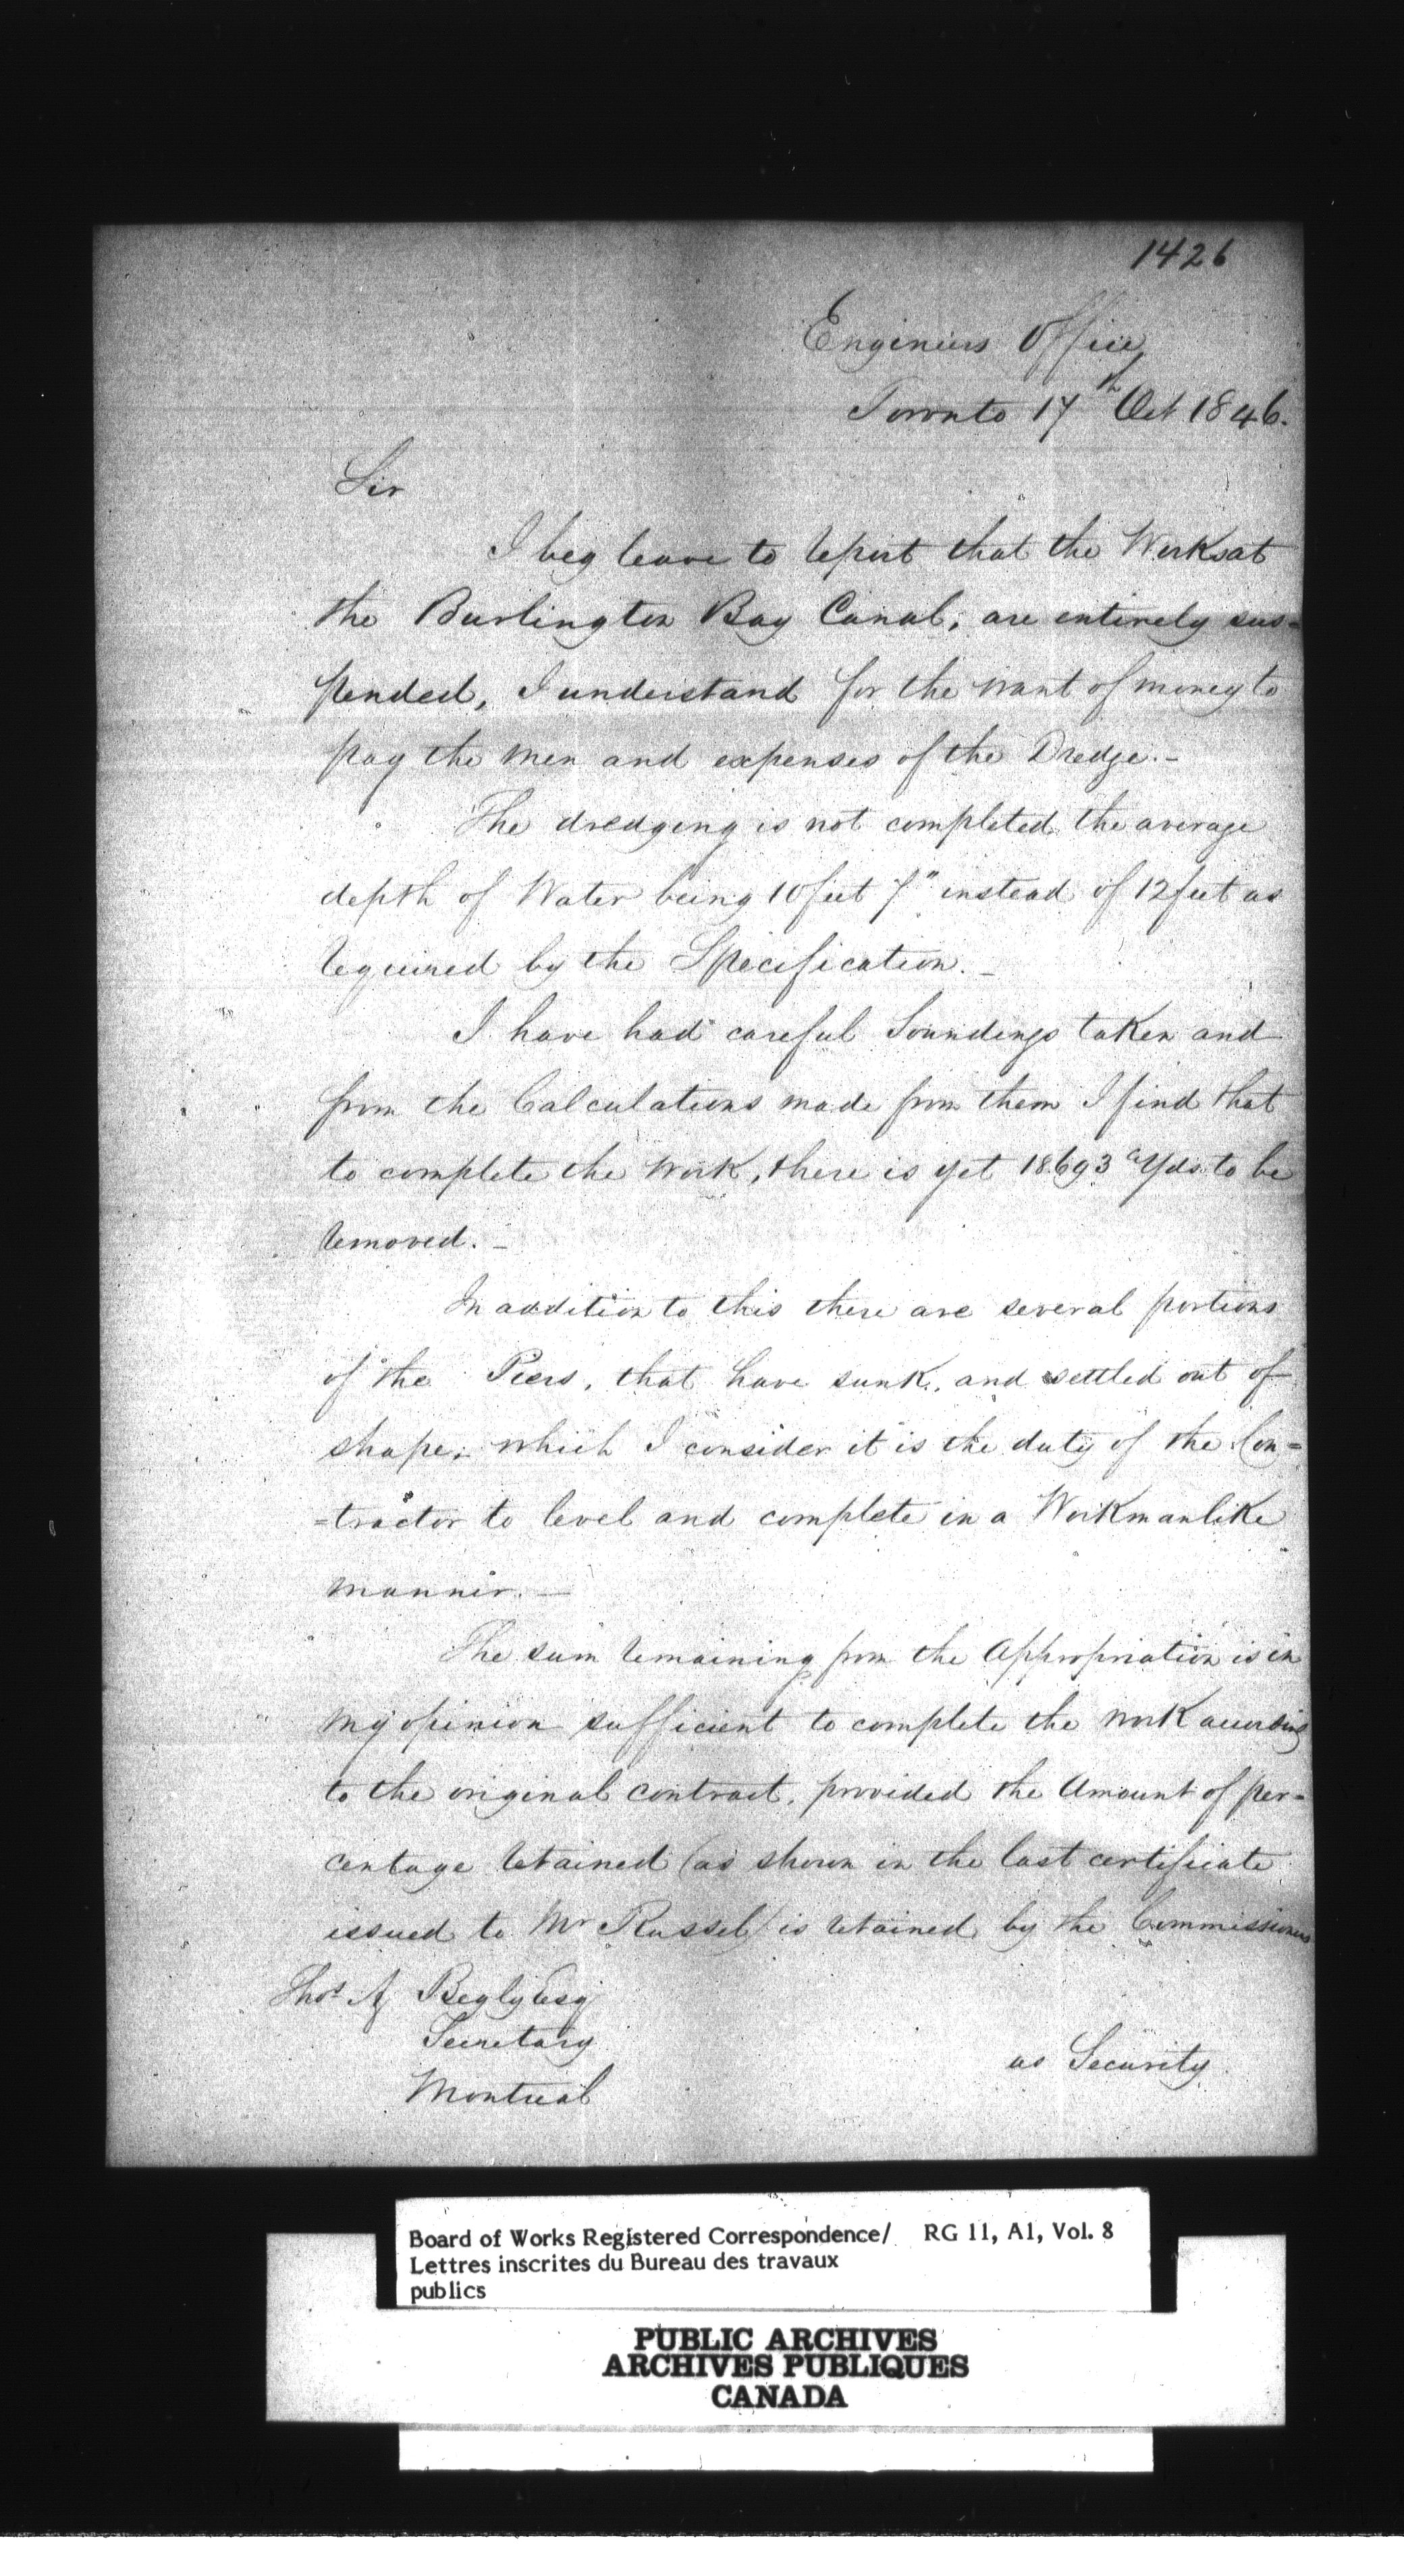 1426
Engineers Office
Toronto 17th Oct 1846.
Sir
I beg leave to report that the Works at
the Burlington Bay Canal, are entirely sus=
pended, I understand for the want of money to
pay the men and expenses of the Dredge.-
The dredging is not completed the average
depth of Water being 10 feet 7" instead of 12 feet as
required by the Specification._
I have had careful Soundings taken and
from the Calculations made from them I find that
to complete the Work, there is yet 18.693 c Yds. to be
removed._
In addition to this there are several portions
of the Piers, that have sunk, and settled out of
shape, which I consider it is the duty of the Con=
=tractor to level and complete in a Workmanlike
manner._
The sum remaining from the Appropriation is in
my opinion sufficient to complete the work according
to the original contract, provided the Amount of per=
centage retained (as shown in the last certificate
issued to Mr Russel) is retained by the Commissioners
Thos A Begly Esq
Secretary
Montreal
as Security
Board of Works Registered Correspondence/ RG 11, A1, Vol. 8
Lettres inscrites du Bureau des travaux
publics
PUBLIC ARCHIVES
ARCHIVES PUBLIQUES
CANADA